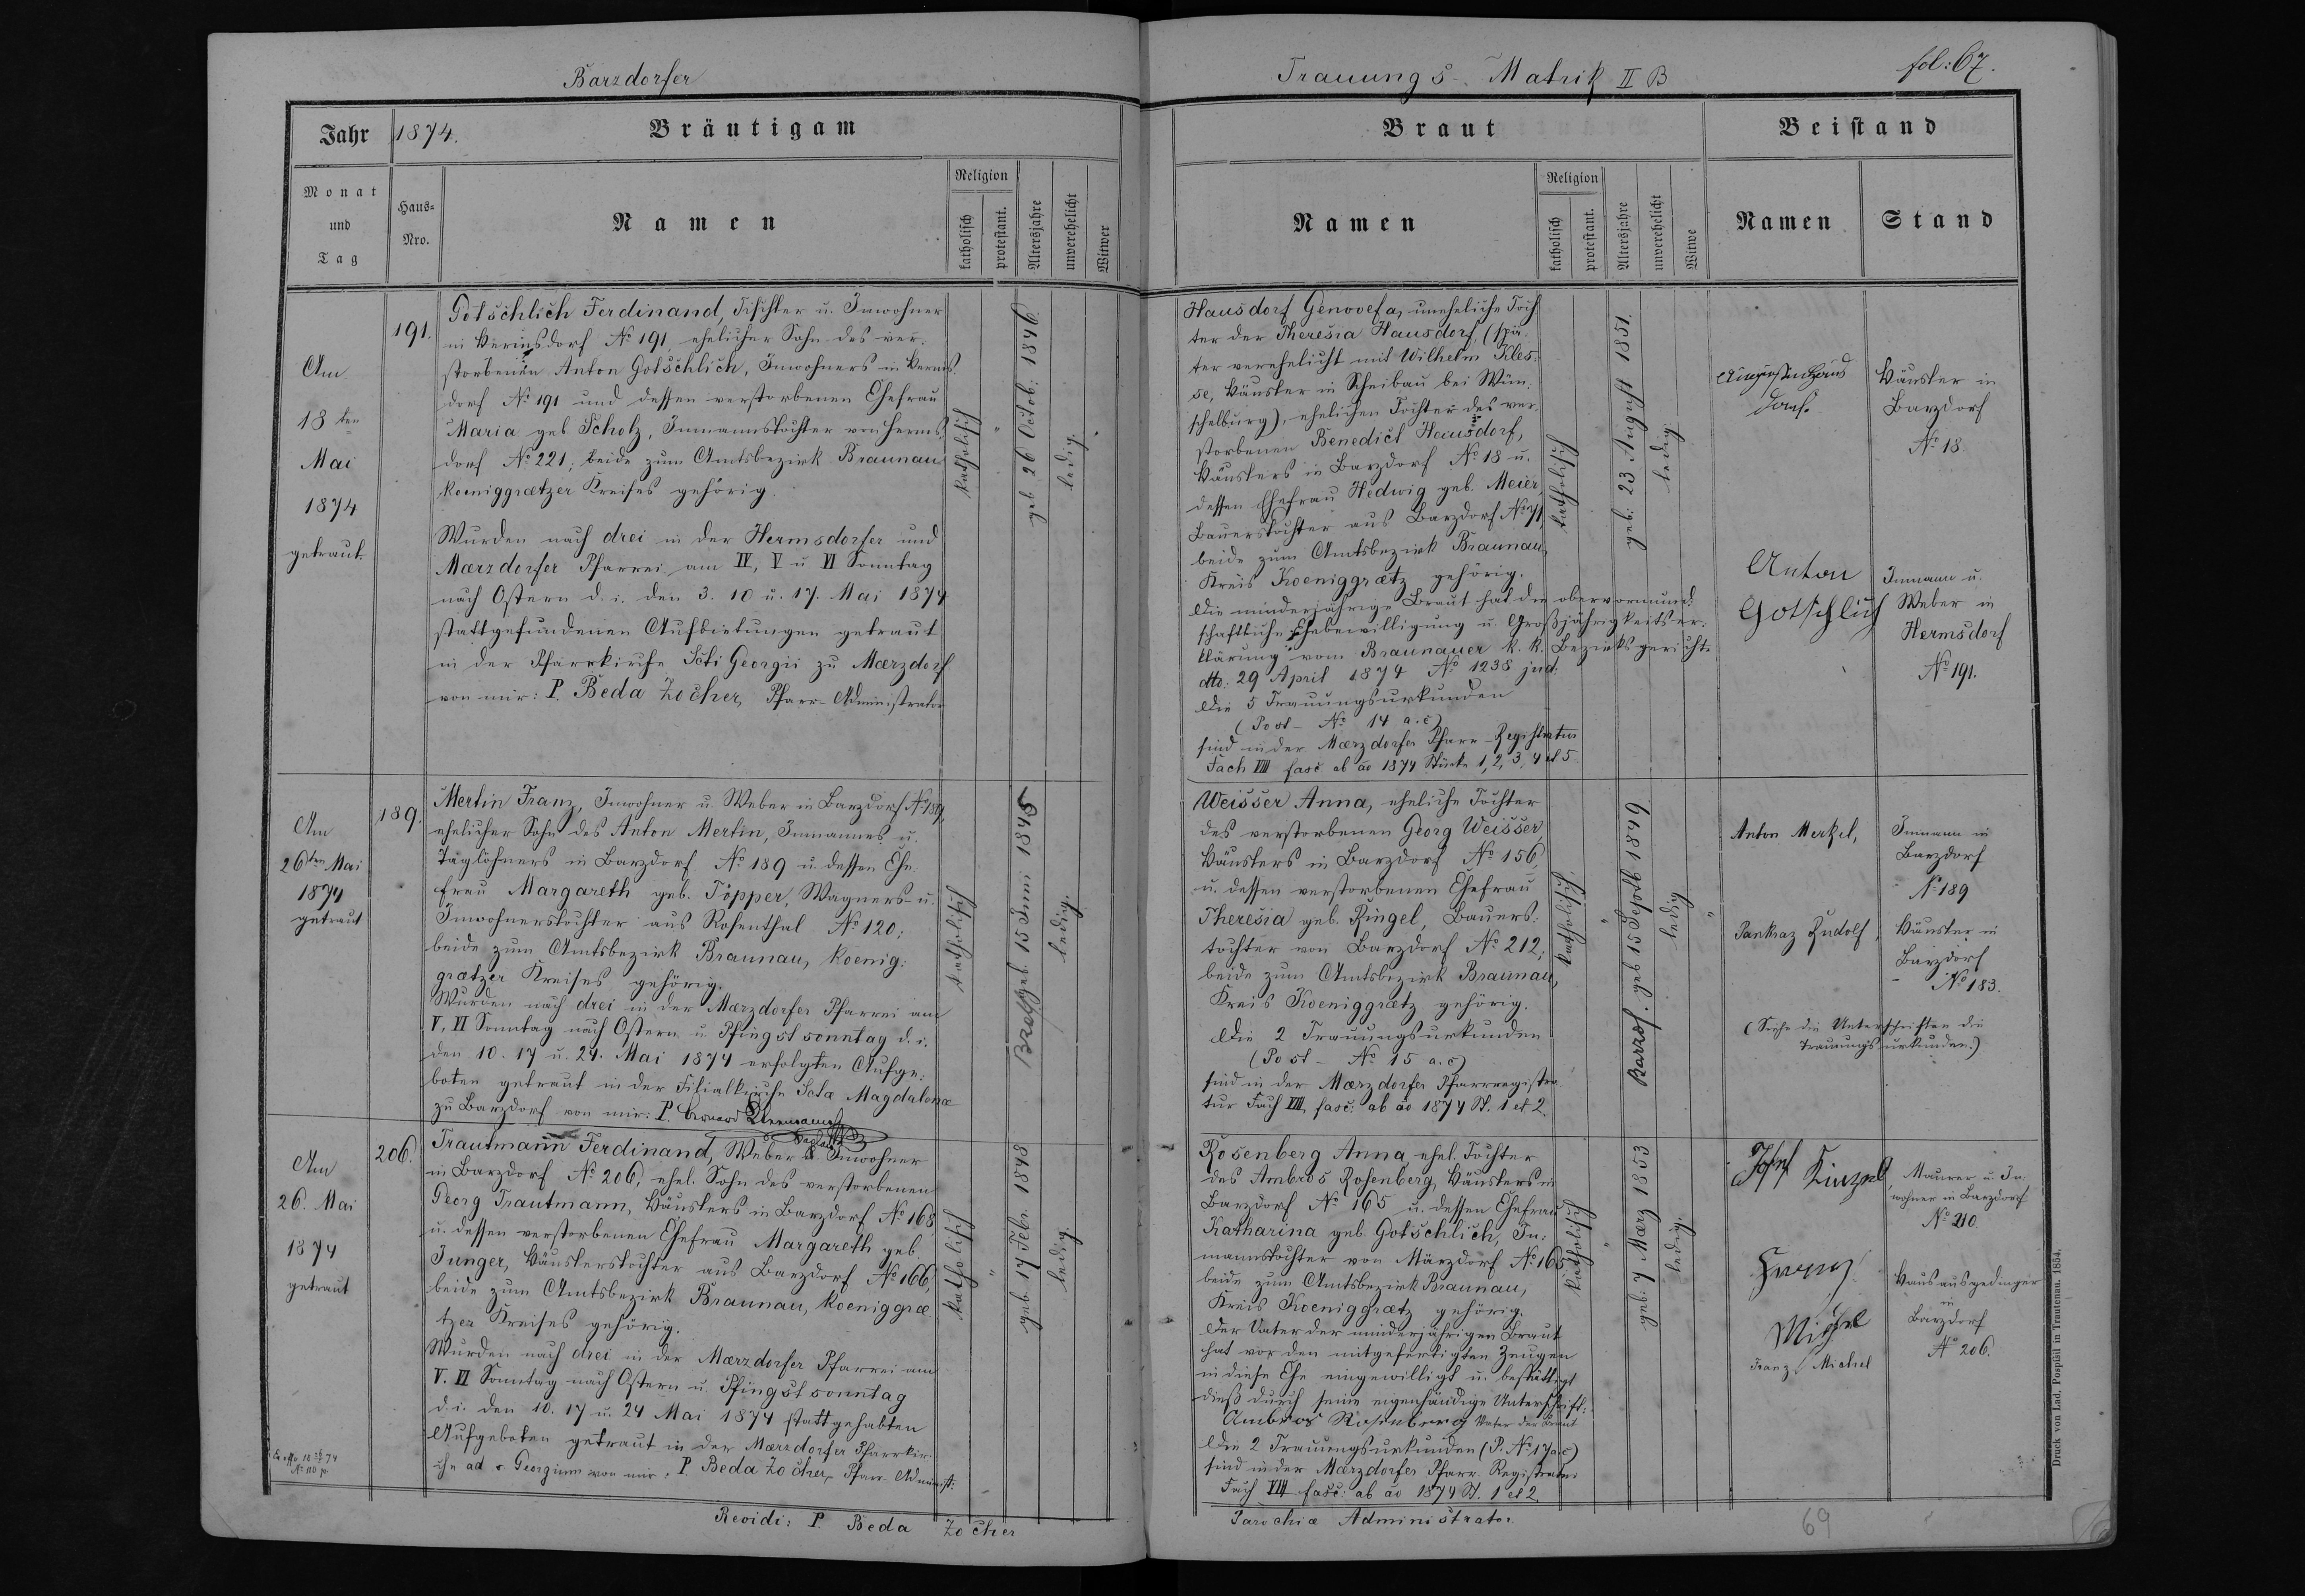 Barzdorfer
Trauungs-Matrik II B
fol: 67.
Jahr 1874.
Bräutigam
Monat und Tag
Haus-Nro.
Namen
Religion
katholisch
protestant.
Altersjahre
unverehelicht
Witwer
Braut
Namen
Religion
katholisch
protestant.
Altersjahre
unverehelicht
Witwe
Beistand
Namen
Stand
Am
18ten
Mai
1874
getraut
191.
Gotschlich Ferdinand, Tischler u. Inwohner
in Hermsdorf No 191, ehelicher Sohn des ver-
storbenen Anton Gotschlich, Inwohners in Herms-
dorf No 191 und dessen verstorbenen Ehefrau
Maria geb. Scholz, Inmannstochter von Herms-
dorf No 221; beide zum Amtsbezirk Braunau
Koeniggrætzer Kreises gehörig.
Wurden nach drei in der Hermsdorfer und
Mærzdorfer Pfarrei am IV, V u VI Sonntag
nach Ostern d. i. den 3. 10 u. 17. Mai 1874
stattgefundenen Aufbietungen getraut
in der Pfarrkirche Scti Georgii zu Mærzdorf
von mir: P. Beda Zocher, Pfarr-Administrator
katholisch
"
geb. 26 Octob: 1846
ledig.
Hausdorf Genovefa, uneheliche Toch
ter der Theresia Hausdorf, (spä-
ter verehelicht mit Wilhelm Kles-
se, Häusler in Scheibau bei Wün-
schelburg), ehelichen Tochter des ver-
storbenen Benedict Hausdorf,
Häuslers in Barzdorf No 18 u.
dessen Ehefrau Hedwig geb. Meier,
Bauerstochter aus Barzdorf No 71,
beide zum Amtsbezirk Braunau,
Kreis Koeniggrætz gehörig.
Die minderjährige Braut hat die obervormund-
schaftliche Ehebewilligung u. Großjährigkeitser-
klärung vom Braunauer k. k. Bezirksgericht
dto: 29 April 1874 No 1238 jud:
Die 5 Trauungsurkunden
(Post- No 14 a.c)
sind in der Mærzdorfer Pfarr-Registratur
Fach VIII fasc ab ao 1874 Stücke 1, 2, 3, 4 et 5
katholisch
geb: 23 August 1851.
ledig
Häusler in
Barzdorf
No 18.
Anton
Gotschlich
Inmann u.
Weber in
Hermsdorf
No 191.
Am
26ten Mai
1874
getraut
189.
Mertin Franz, Inwohner u. Weber in Barzdorf No 189,
ehelicher Sohn des Anton Mertin, Inmannes u.
Taglöhners in Barzdorf No 189 u. dessen Ehe-
frau Margareth geb. Töpper, Wagners- u.
Inwohnerstochter aus Rosenthal No 120;
beide zum Amtsbezirk Braunau, Koenig-
grætzer Kreises gehörig.
Wurden nach drei in der Mærzdorfer Pfarrei am
V, VI Sonntag nach Ostern u. Pfingstsonntag d. i.
den 10. 17 u. 24. Mai 1874 erfolgten Aufge-
boten getraut in der Filialkirche Sctæ Magdalenæ
zu Barzdorf von mir: P.
katholisch
geb. 15 Juni 1845
ledig.
Weisser Anna, eheliche Tochter
des verstorbenen Georg Weisser
Häuslers in Barzdorf No 156,
u. dessen verstorbenen Ehefrau
Theresia geb. Ringel, Bauers-
tochter von Barzdorf No 212;
beide zum Amtsbezirk Braunau,
Kreis Koeniggrætz gehörig.
Die 2 Trauungsurkunden
(Post- No 15 a.c)
sind in der Mærzdorfer Pfarrregistra-
tur Fach VIII, fasc: ab ao 1874 St. 1 et 2.
katholisch
"
geb 15 Septb 1849
ledig
"
Anton Merkel,
Inmann in
Barzdorf
No 189
Pankraz Rudolf,
Häusler in
Barzdorf
No 183.
(Siehe die Unterschriften die
Trauungsurkunden.)
Am
26. Mai
1874
getraut
206.
Trautmann Ferdinand, Weber u Inwohner
in Barzdorf No 206, ehel. Sohn des verstorbenen
Georg Trautmann, Häuslers in Barzdorf No 168,
u. dessen verstorbenen Ehefrau Margareth geb.
Junger, Häuslerstochter aus Barzdorf No 166,
beide zum Amtsbezirk Braunau, Koeniggræ-
tzer Kreises gehörig.
Wurden nach drei in der Mærzdorfer Pfarrei am
V. VI Sonntag nach Ostern u. Pfingstsonntag
d. i. den 10. 17 u. 24 Mai 1874 stattgehabten
Aufgeboten getraut in der Mærzdorfer Pfarrkir-
che ad s. Georgium von mir: P. Beda Zocher, Pfarr-Administ:
katholisch
"
geb. 17 Febr. 1848
ledig.
Rosenberg Anna, ehel. Tochter
des Ambros Rosenberg, Häuslers in
Barzdorf No 165 u. dessen Ehefrau
Katharina geb. Gotschlich, In-
mannstochter von Märzdorf No 165
beide zum Amtsbezirk Braunau,
Kreis Koeniggrætz gehörig.
Der Vater der minderjährigen Braut
hat vor den mitgefertigten Zeugen
in diese Ehe eingewilligt u. bestättigt
dieß durch seine eigenhändige Unterschrift:
Ambros Rosenberg Vater der Braut
Die 2 Trauungsurkunden (P. No 17 a.c)
sind in der Mærzdorfer Pfarr Registratur
Fach VIII fasc: ab ao 1874 St. 1 et 2.
katholisch
"
geb: 7 März 1853
ledig.
Josef Kinzel
Maurer u. In-
wohner in Barzdorf
No 210.
Franz
Michel
Franz Michel
Hausausgedinger
in
Barzdorf
No 206.
Revidi: P. Beda Zocher
Parochiæ Administrator.
69
Druck von Lad. Pospisil in Trautenau. 1854.